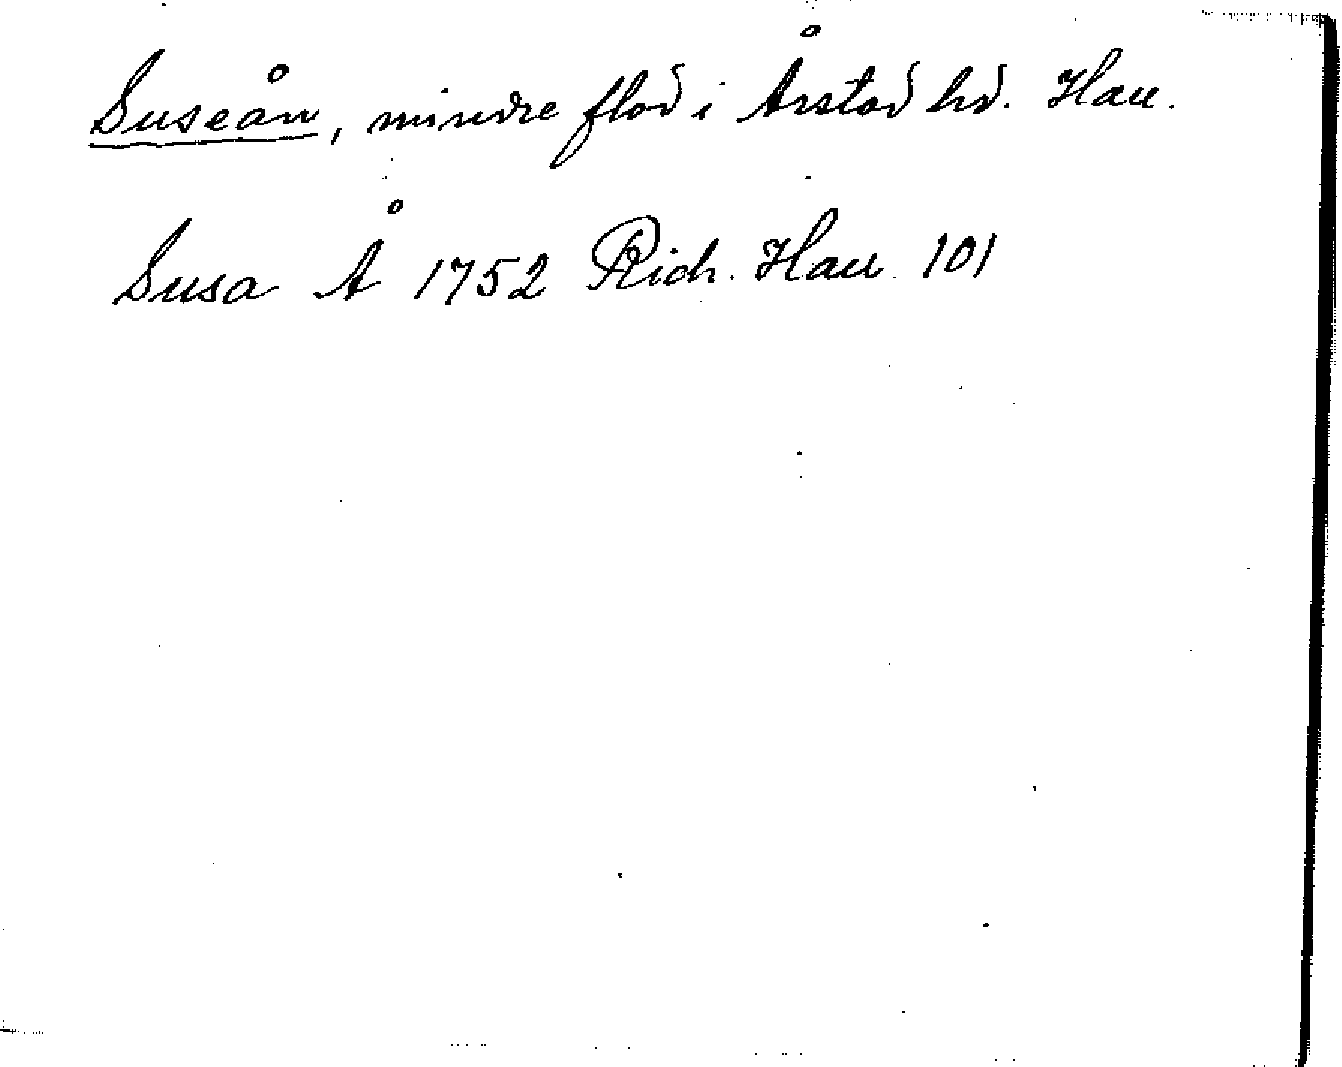 Suseån, mindre flod i Årstad hd. Hall.
Susa Å 1752 Rich. Hall 101